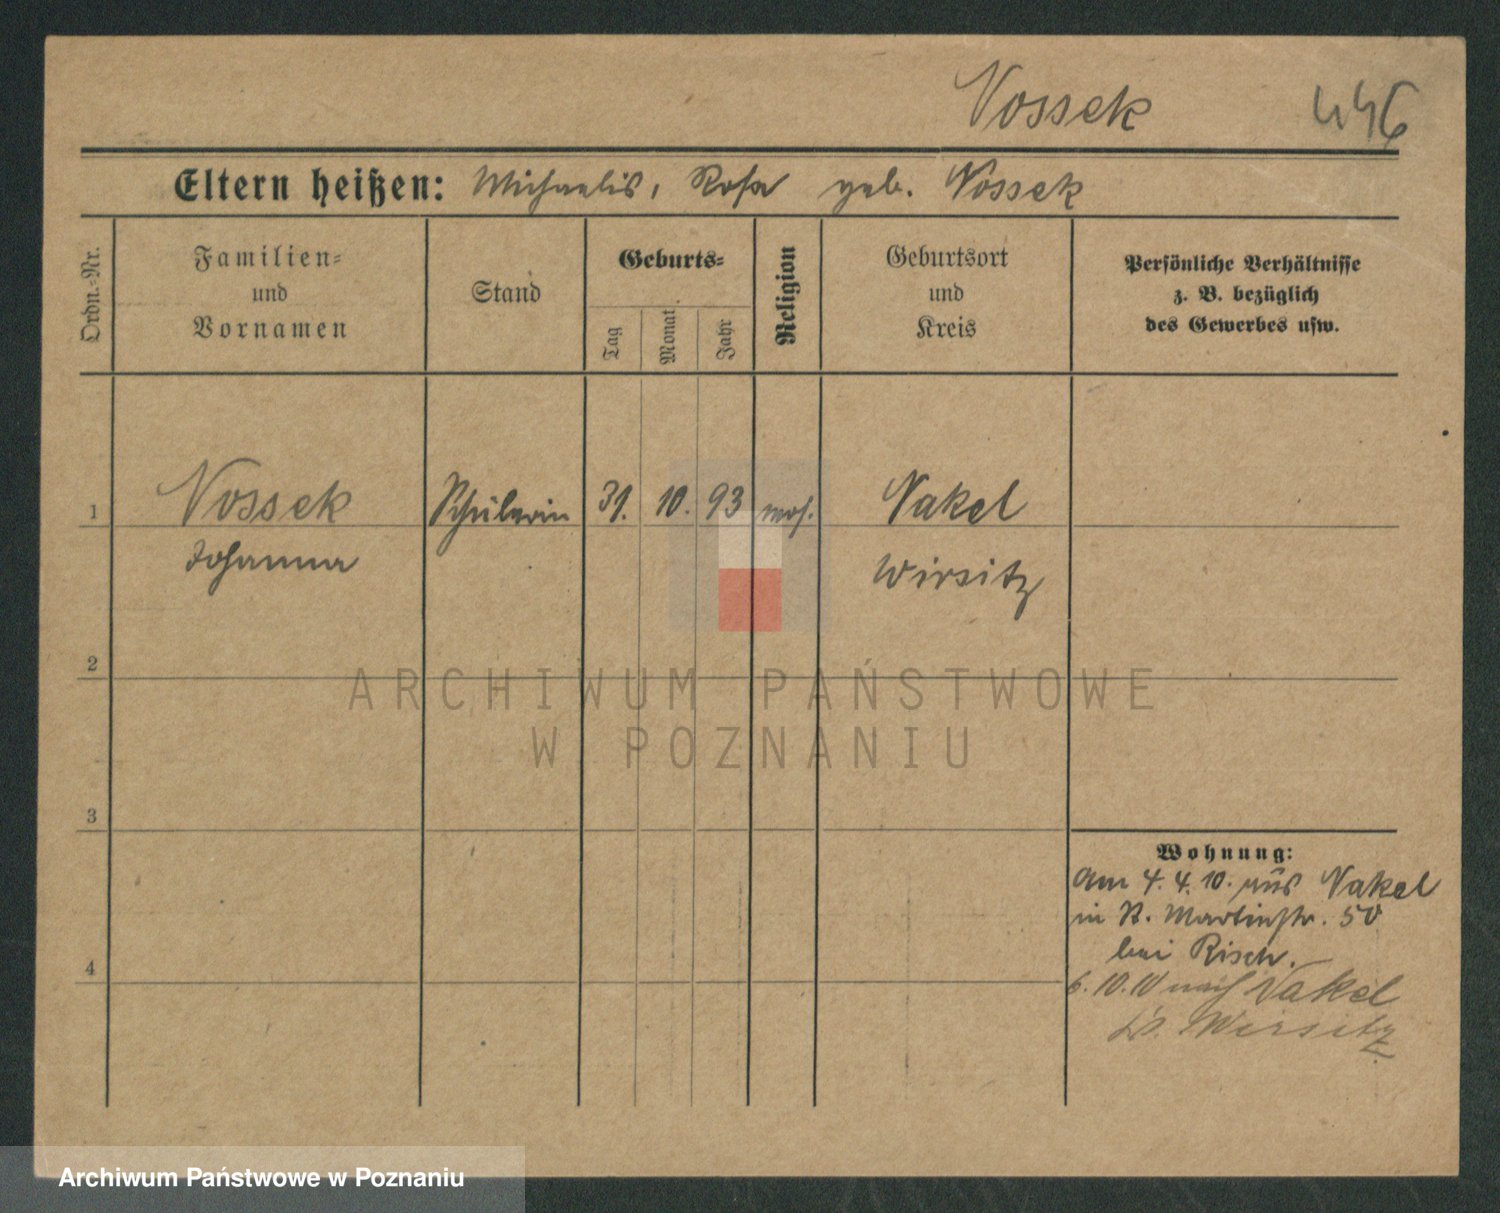 Vossek 446
Eltern heißen: Michaelis, Rosa geb. Vossek
Ordn.-Nr.
Familien-
und
Vornamen
Stand
Geburts-
Tag
Monat
Jahr
Religion
Geburtsort
und
Kreis
Persönliche Verhältnisse
z. B. bezüglich
des Gewerbes usw.
1 Vossek Schülerin 31. 10. 93 mos. Nakel
Johanna Wirsitz
2
3
4
Wohnung:
Am 4. 4. 10. aus Nakel
in St. Martinstr. 50
bei Risch.
6. 10. 10 nach Nakel
Wirsitz
ARCHIWUM PAŃSTWOWE
W POZNANIU
Archiwum Państwowe w Poznaniu